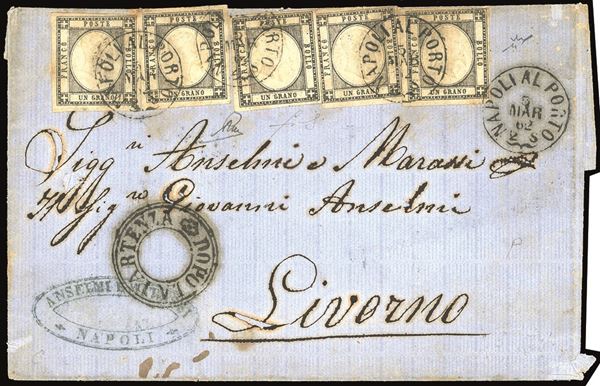 FRANCO POSTE BOLLO UN GRANO
FRANCO POSTE BOLLO UN GRANO
FRANCO POSTE BOLLO UN GRANO
FRANCO POSTE BOLLO UN GRANO
FRANCO POSTE BOLLO UN GRANO
NAPOLI AL PORTO
NAPOLI AL PORTO
5
MAR
62
2 S
Sigg ri Anselmi e Marassi
Giovanni Anselmi
DOPO LA PARTENZA
Livorno
ANSELMI
NAPOLI